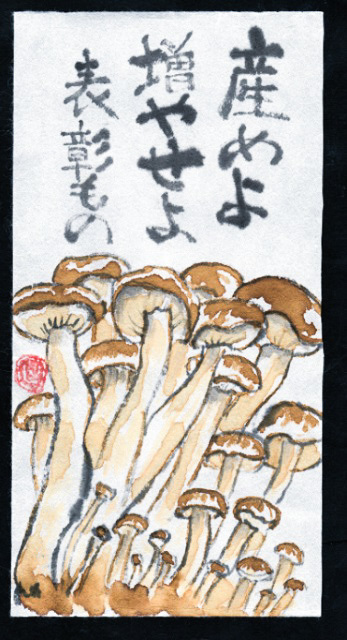 産めよ
増やせよ
表彰もの